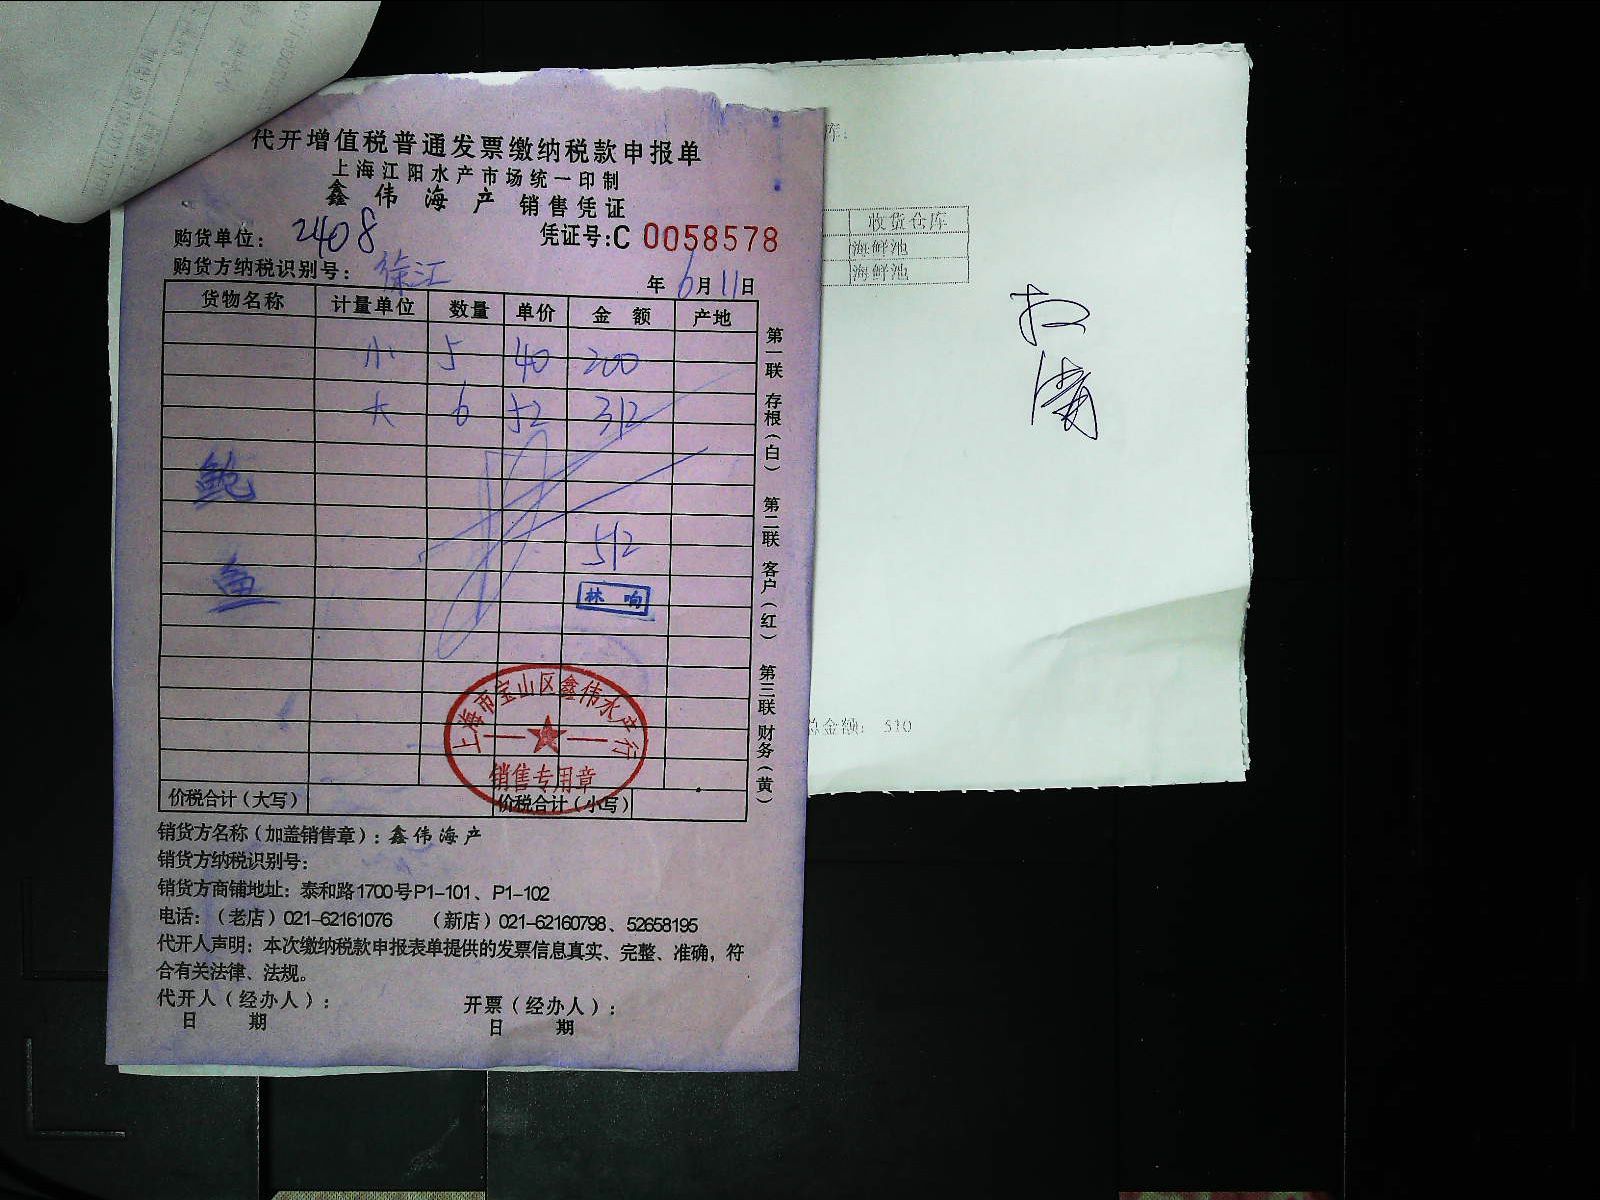 代开增值税普通发票缴纳税款申报单
上海江阳水产市场统一印制
鑫伟海产 销售凭证
购货单位: 2408 凭证号:C 0058578
购货方纳税识别号: 徐江 年6月11日
货物名称 计量单位 数量 单价 金额 产地
小 5 40 200
大 6 52 312
鲍
512
鱼
林响
上海市宝山区鑫伟水产行
销售专用章
价税合计(大写) 价税合计(小写)
第一联 存根(白) 第二联 客户(红) 第三联 财务(黄)
销货方名称(加盖销售章): 鑫伟海产
销货方纳税识别号:
销货方商铺地址: 泰和路1700号P1-101、P1-102
电话:(老店)021-62161076 (新店)021-62160798、52658195
代开人声明: 本次缴纳税款申报表单提供的发票信息真实、完整、准确,符
合有关法律、法规。
代开人(经办人): 开票(经办人):
日期 日期
收货仓库
海鲜池
海鲜池
总金额: 510